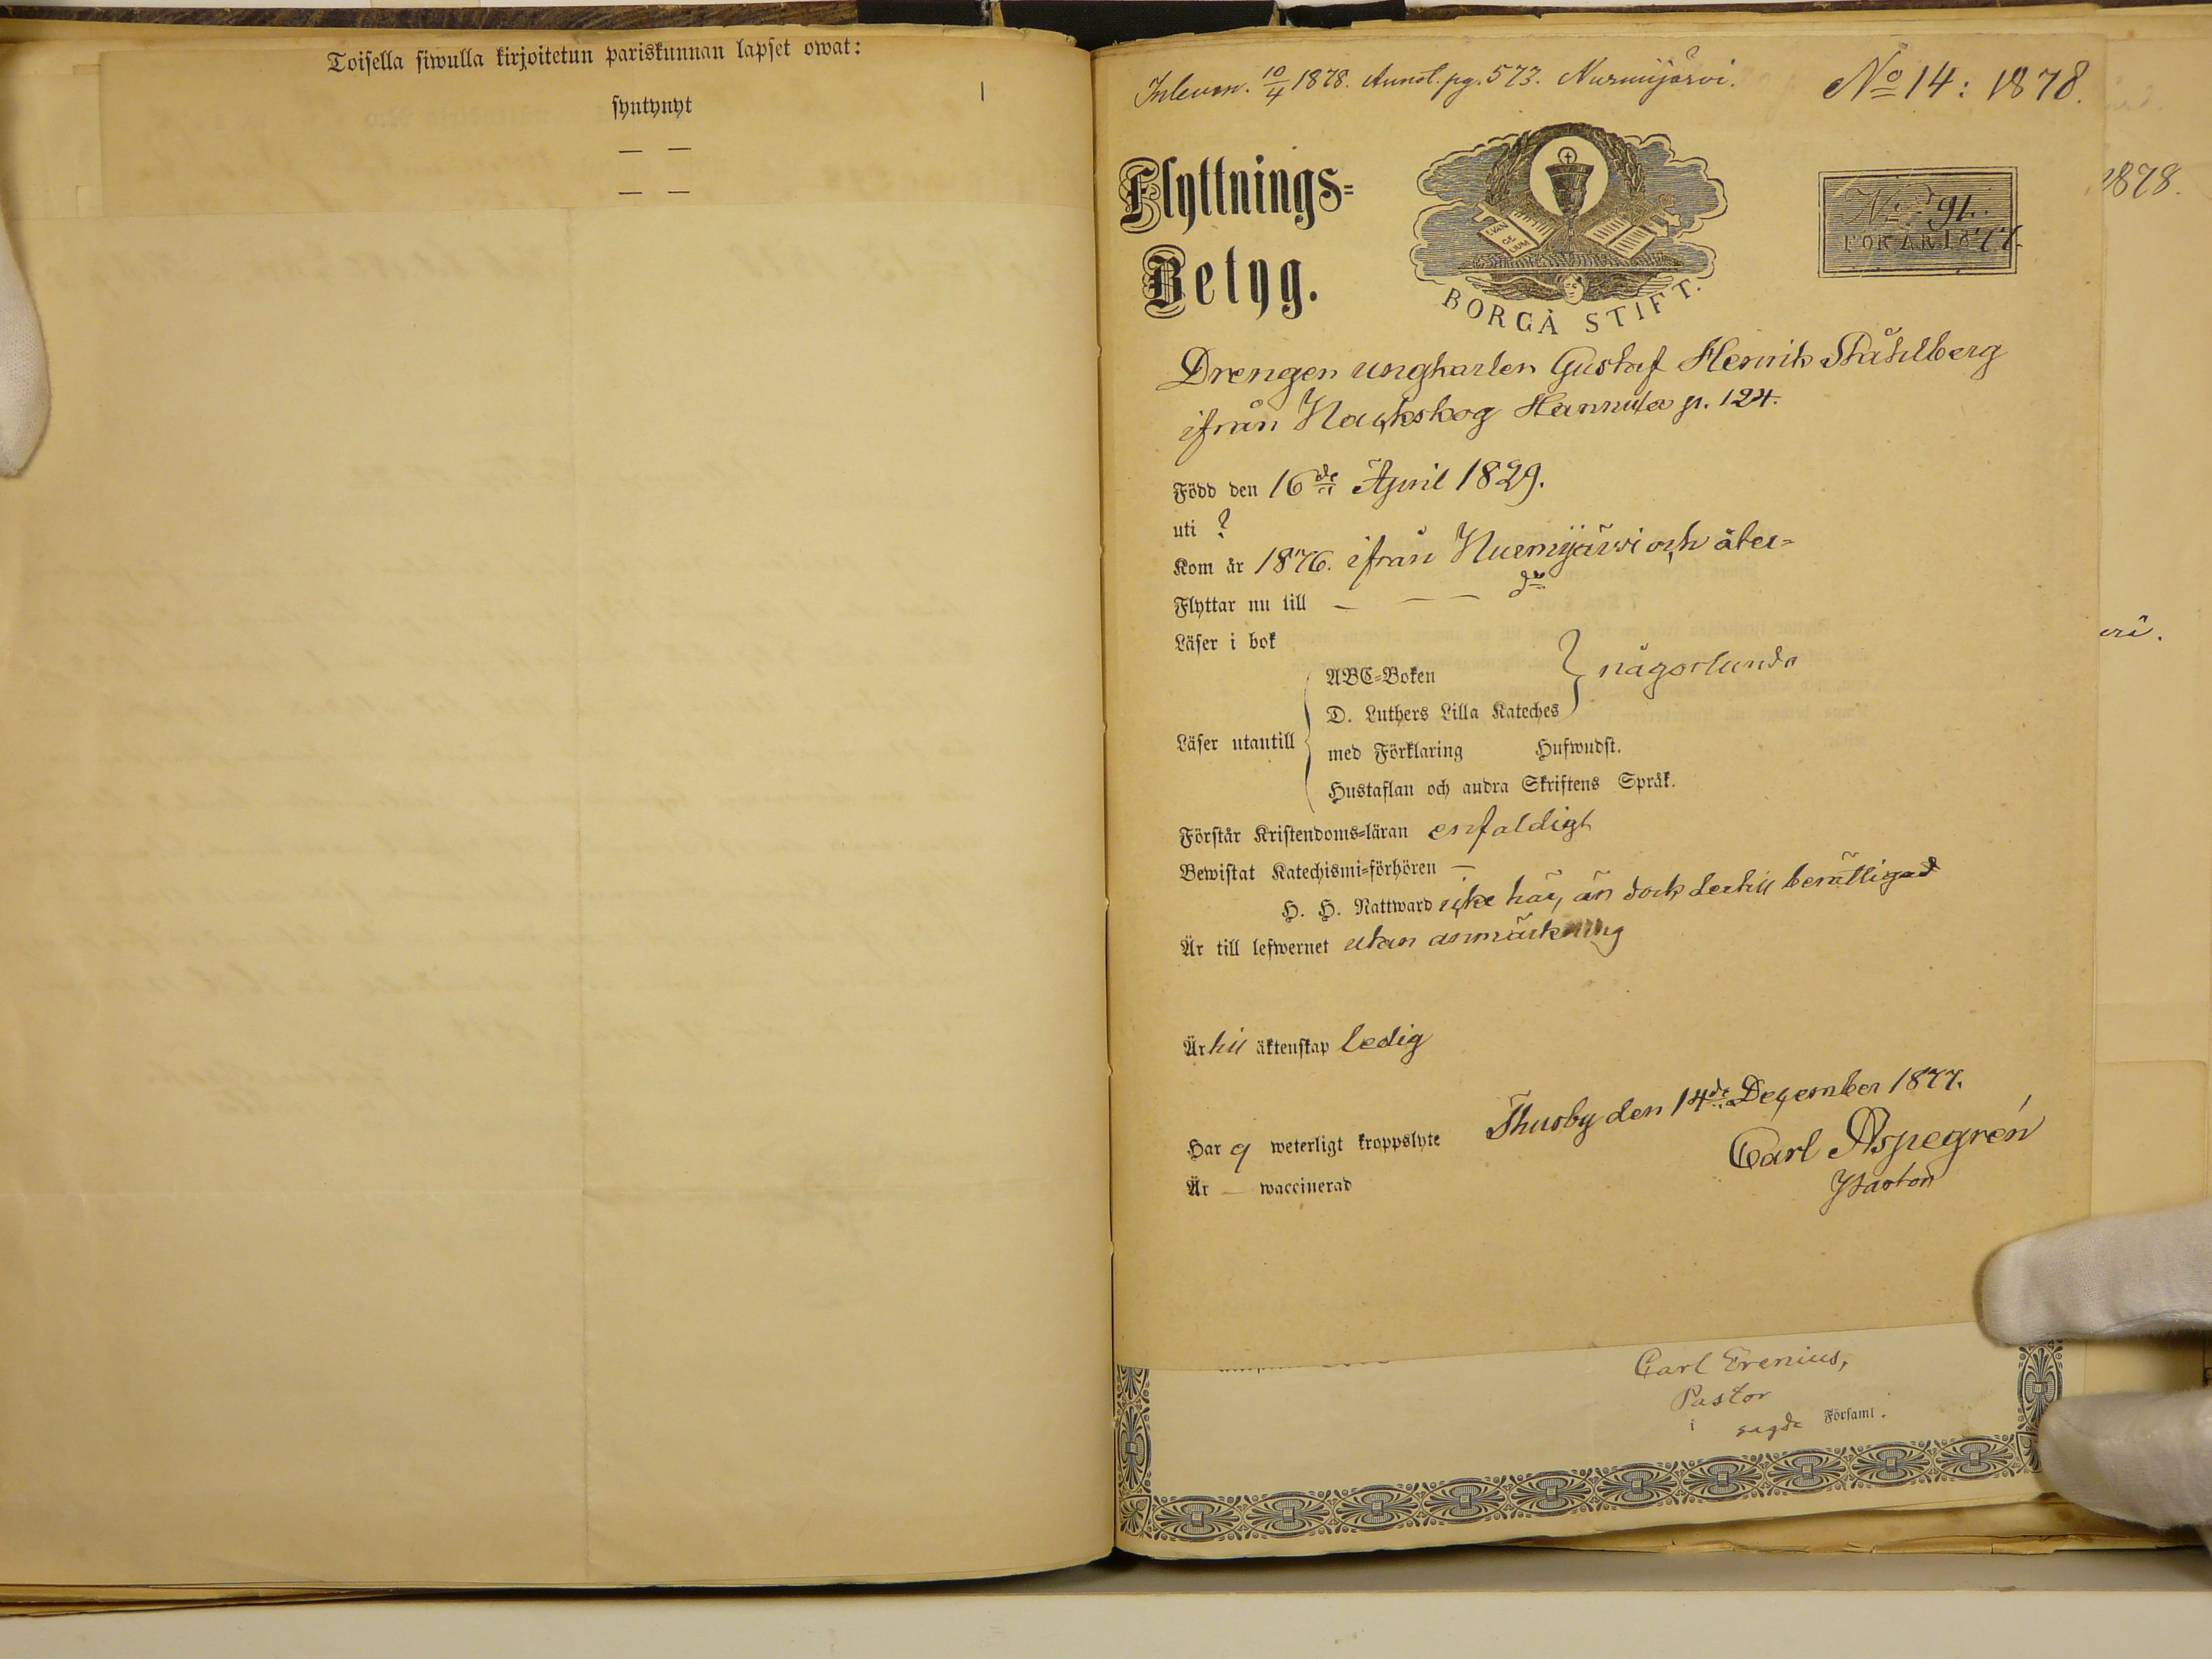 Toisella siwulla kirjoitetun pariskunnan lapset owat:
syntynyt
— —
— —
Inlevm. 10/4 1878. Annot. pg. 573. Nurmijärvi.
No 14: 1878.
Flyttnings-
Betyg.
EVAN
GE
LIUM
BORGÅ STIFT.
No 91.
FÖR ÅR 1877.
Drengen ungkarlen Gustaf Henrik Ståhlberg
ifrån Nackskog Hannula p. 124.
Född den 16de April 1829.
uti ?
Kom år 1876. ifrån Nurmijärvi och åter-
Flyttar nu till — — — do
Läser i bok
Läser utantill
ABC-Boken
D. Luthers Lilla Kateches
} någorlunda
med Förklaring Hufwudst.
Hustaflan och andra Skriftens Språk.
Förstår Kristendoms-läran enfaldigt
Bewistat Katechismi-förhören —
H. H. Nattward icke här, än dock dertill berättigad
Är till lefwernet utan anmärkning
Är till äktenskap ledig
Thusby den 14de December 1877.
Har ej weterligt kroppslyte
Carl Aspegrén
Pastor
Är — waccinerad
Carl Erenius,
Pastor
i sagda Församl.
1878.